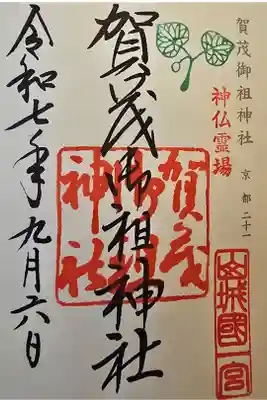 賀茂御祖神社 京都二十一
神仏霊場
山城國一宮
賀茂御祖神社
賀茂御祖神社
令和七年九月六日